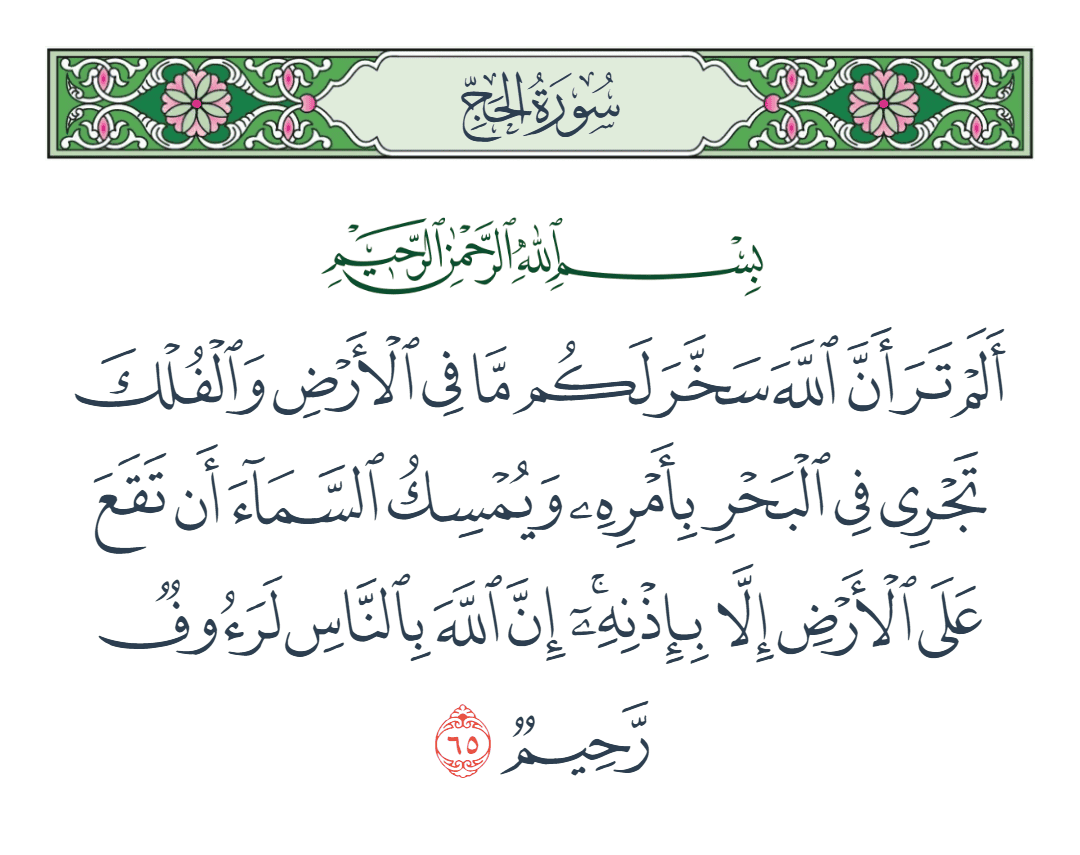 سُورَةُ الحَجِّ
بِسْمِ ٱللَّهِ ٱلرَّحْمَٰنِ ٱلرَّحِيمِ
أَلَمْ تَرَ أَنَّ ٱللَّهَ سَخَّرَ لَكُم مَّا فِى ٱلْأَرْضِ وَٱلْفُلْكَ
تَجْرِى فِى ٱلْبَحْرِ بِأَمْرِهِۦ وَيُمْسِكُ ٱلسَّمَآءَ أَن تَقَعَ
عَلَى ٱلْأَرْضِ إِلَّا بِإِذْنِهِۦٓ ۚ إِنَّ ٱللَّهَ بِٱلنَّاسِ لَرَءُوفٌ
رَّحِيمٌ ٦٥